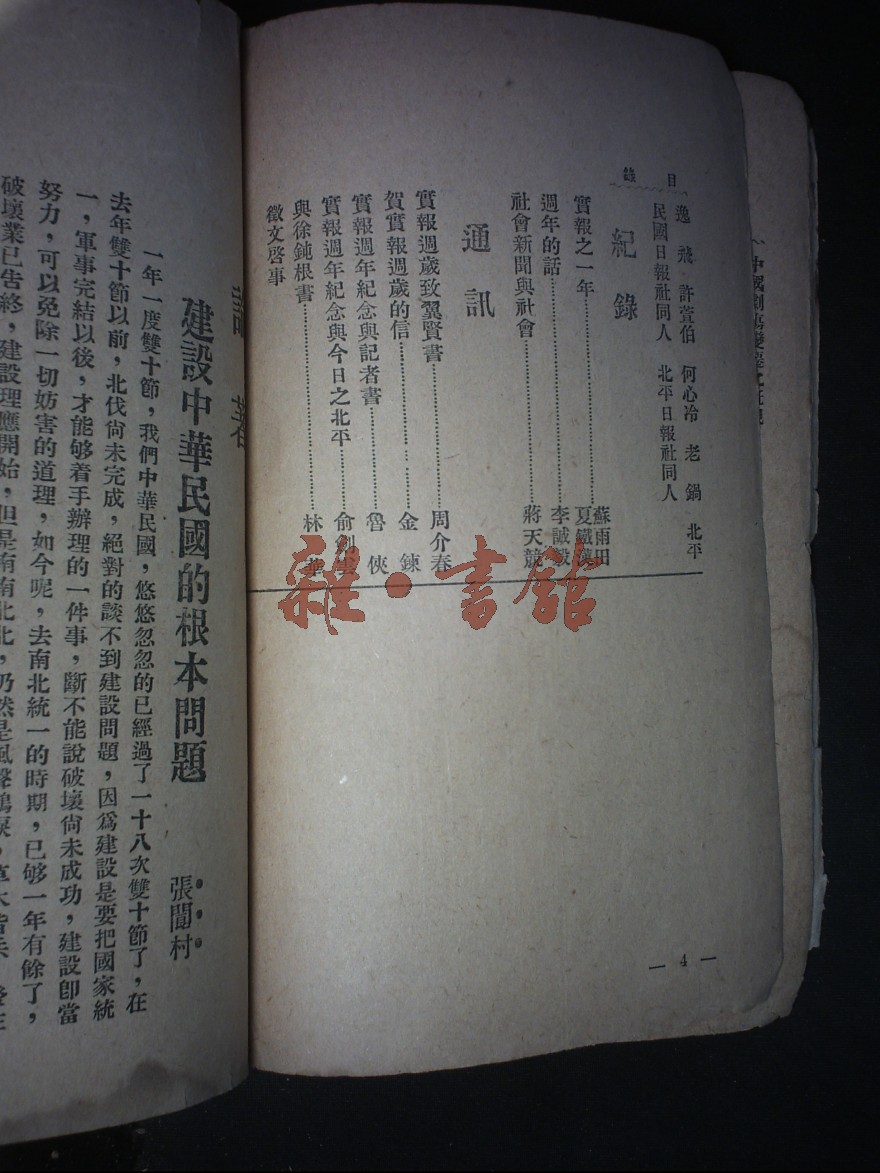 目錄
逸飛 許萱伯 何心冷 老鍋 北平
民國日報社同人 北平日報社同人
紀錄
實報之一年……蘇雨田
夏鐵漢
週年的話……李誠毅
社會新聞與社會……蔣天競
通訊
實報週歲致翼賢書……周介春
賀實報週歲的信……金鍊
實報週年紀念與記者書……魯俠
實報週年紀念與今日之北平……俞劍
與徐鈍根書……林
徵文啓事
— 4 —
雜·書館
著
建設中華民國的根本問題
張閬村
一年一度雙十節,我們中華民國,悠悠忽忽的已經過了一十八次雙十節了,在
去年雙十節以前,北伐尚未完成,絕對的談不到建設問題,因爲建設是要把國家統
一,軍事完結以後,才能够着手辦理的一件事,斷不能說破壞尚未成功,建設卽當
努力,可以免除一切妨害的道理,如今呢,去南北統一的時期,已够一年有餘了,
破壞業已告終,建設理應開始,但是南南北北,仍然是風聲鶴唳,草木皆兵